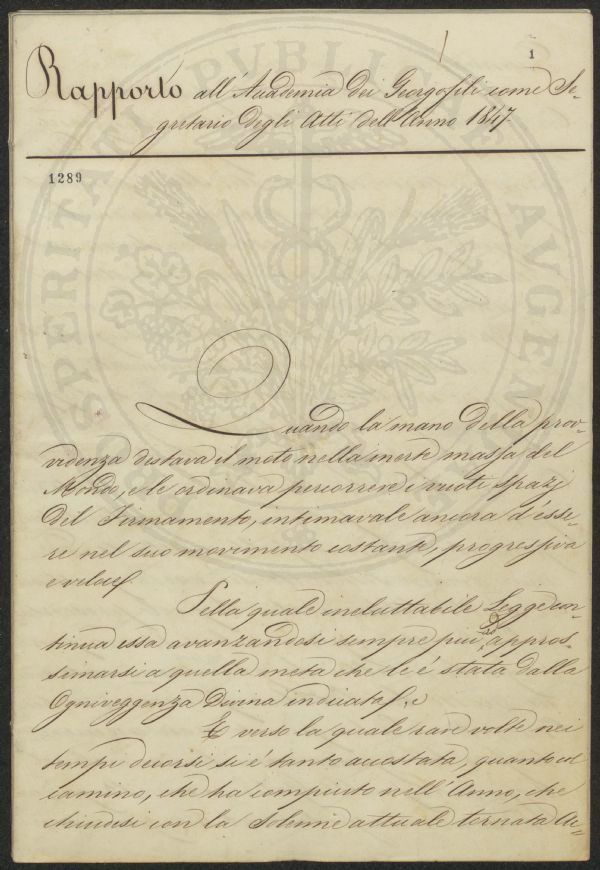 1
Rapporto all'Accademia dei Georgofili come Se-
gretario degli Atti dell'Anno 1847.
1289
PROSPERITATI PVBLICAE AVGENDAE
Quando la mano della prov-
videnza destava il moto nella inerte massa del
Mondo, e le ordinava percorrere i vuoti spazj
del Firmamento, intimavale ancora d'esse-
re nel suo movimento costante, progressiva
e veloce.
Nella quale ineluttabile Legge con-
tinua essa avanzandosi sempre più ad appros-
simarsi a quella meta che le è stata dalla
Ogniveggenza Divina indicata, e
E verso la quale rare volte nei
tempi decorsi si è tanto accostata, quanto col
camino, che ha compiuto nell'Anno, che
chiudesi con la Solenne attuale tornata Ac=